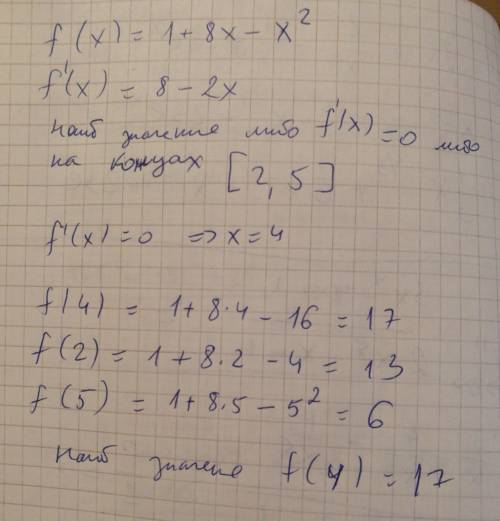 f(x) = 1 + 8x - x²
f'(x) = 8 - 2x
наиб значение либо f'(x) = 0 либо
на концах [2, 5]
f'(x) = 0 => x = 4
f(4) = 1 + 8·4 - 16 = 17
f(2) = 1 + 8·2 - 4 = 13
f(5) = 1 + 8·5 - 5² = 6
Наиб значение f(4) = 17